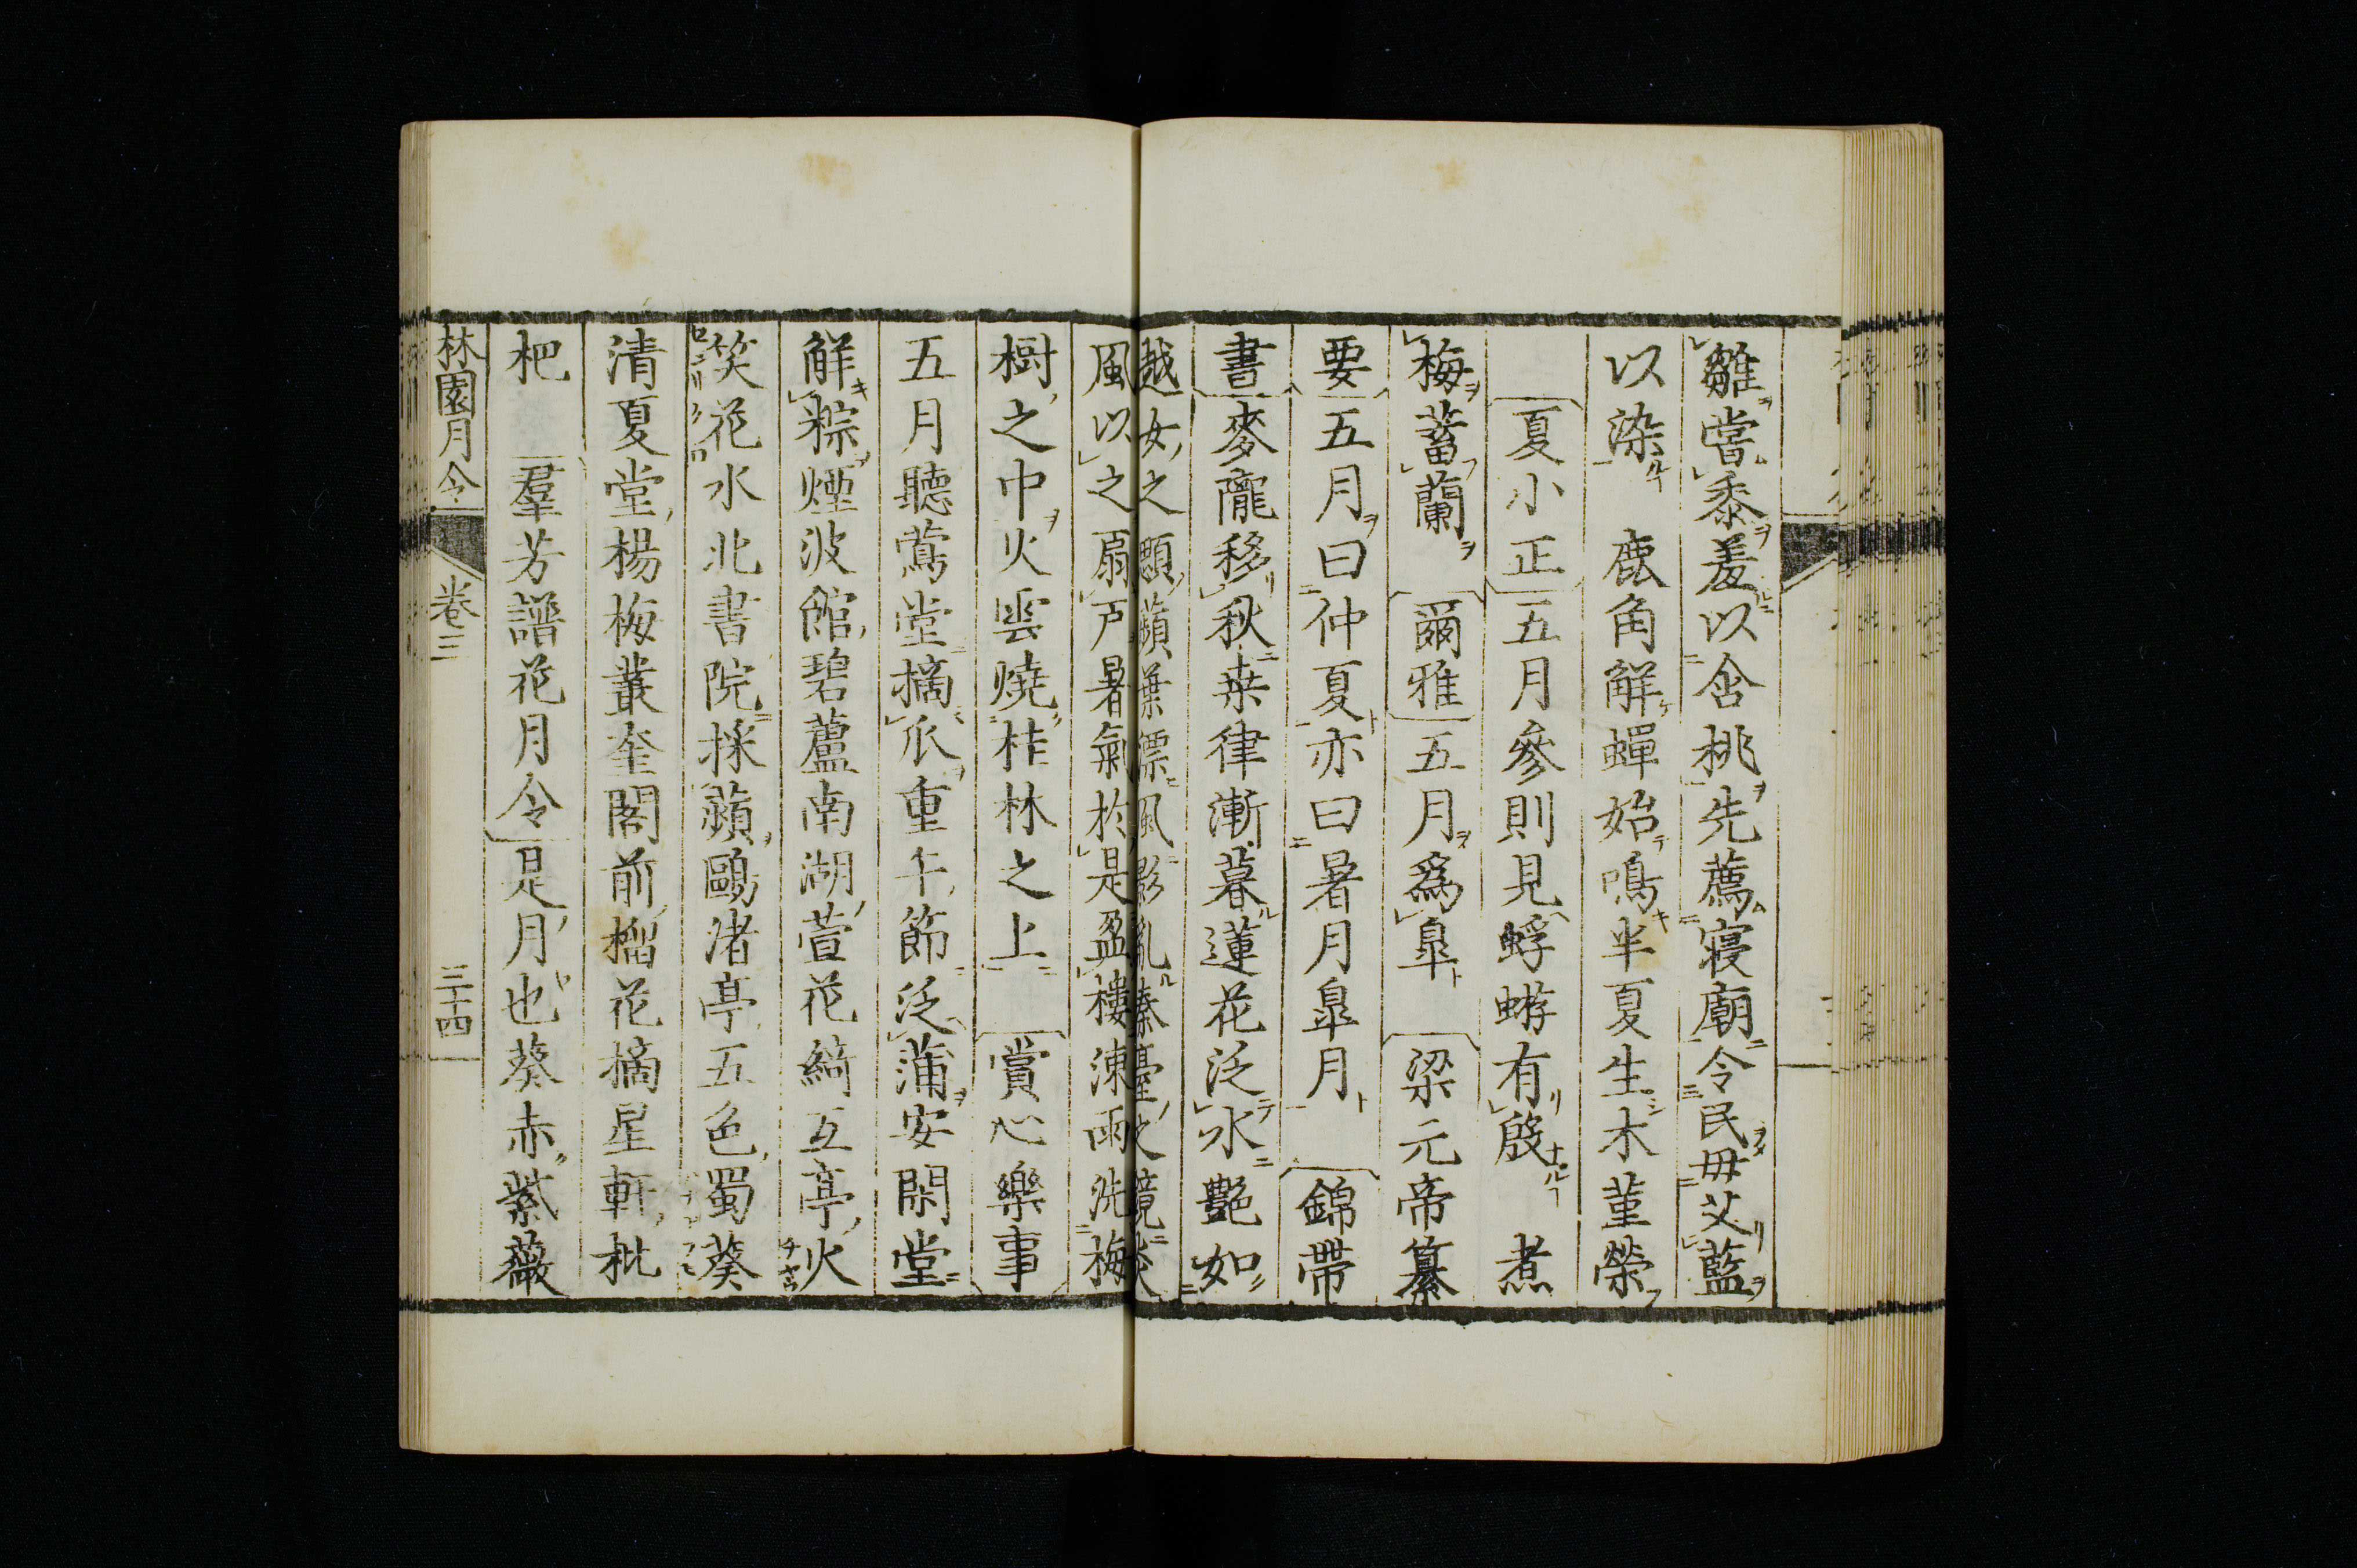 雛嘗黍羞以含桃先薦寢廟令民毋艾藍
以染 鹿角解蟬始鳴半夏生木堇榮
夏小正 五月參則見蜉蝣有殷 煮
梅蓄蘭 爾雅 五月為皐 梁元帝纂
要 五月曰仲夏亦曰暑月皐月 錦帶
書 麥隴移秋桒律漸暮蓮花泛水艷如
越女之顋蘋葉漂風影亂秦臺之鏡炎
風以之扇戸暑氣於是盈樓凍雨洗梅
樹之中火雲燒桂林之上 賞心樂事
五月聽鶯堂摘瓜重午節泛蒲安閑堂
解粽煙波館碧蘆南湖萱花綺互亭火
笑花水北書院採蘋鷗渚亭五色蜀葵
清夏堂楊梅叢奎閣前榴花摘星軒枇
杷 羣芳譜花月令 是月也葵赤紫薇
林園月令 卷三 三十四